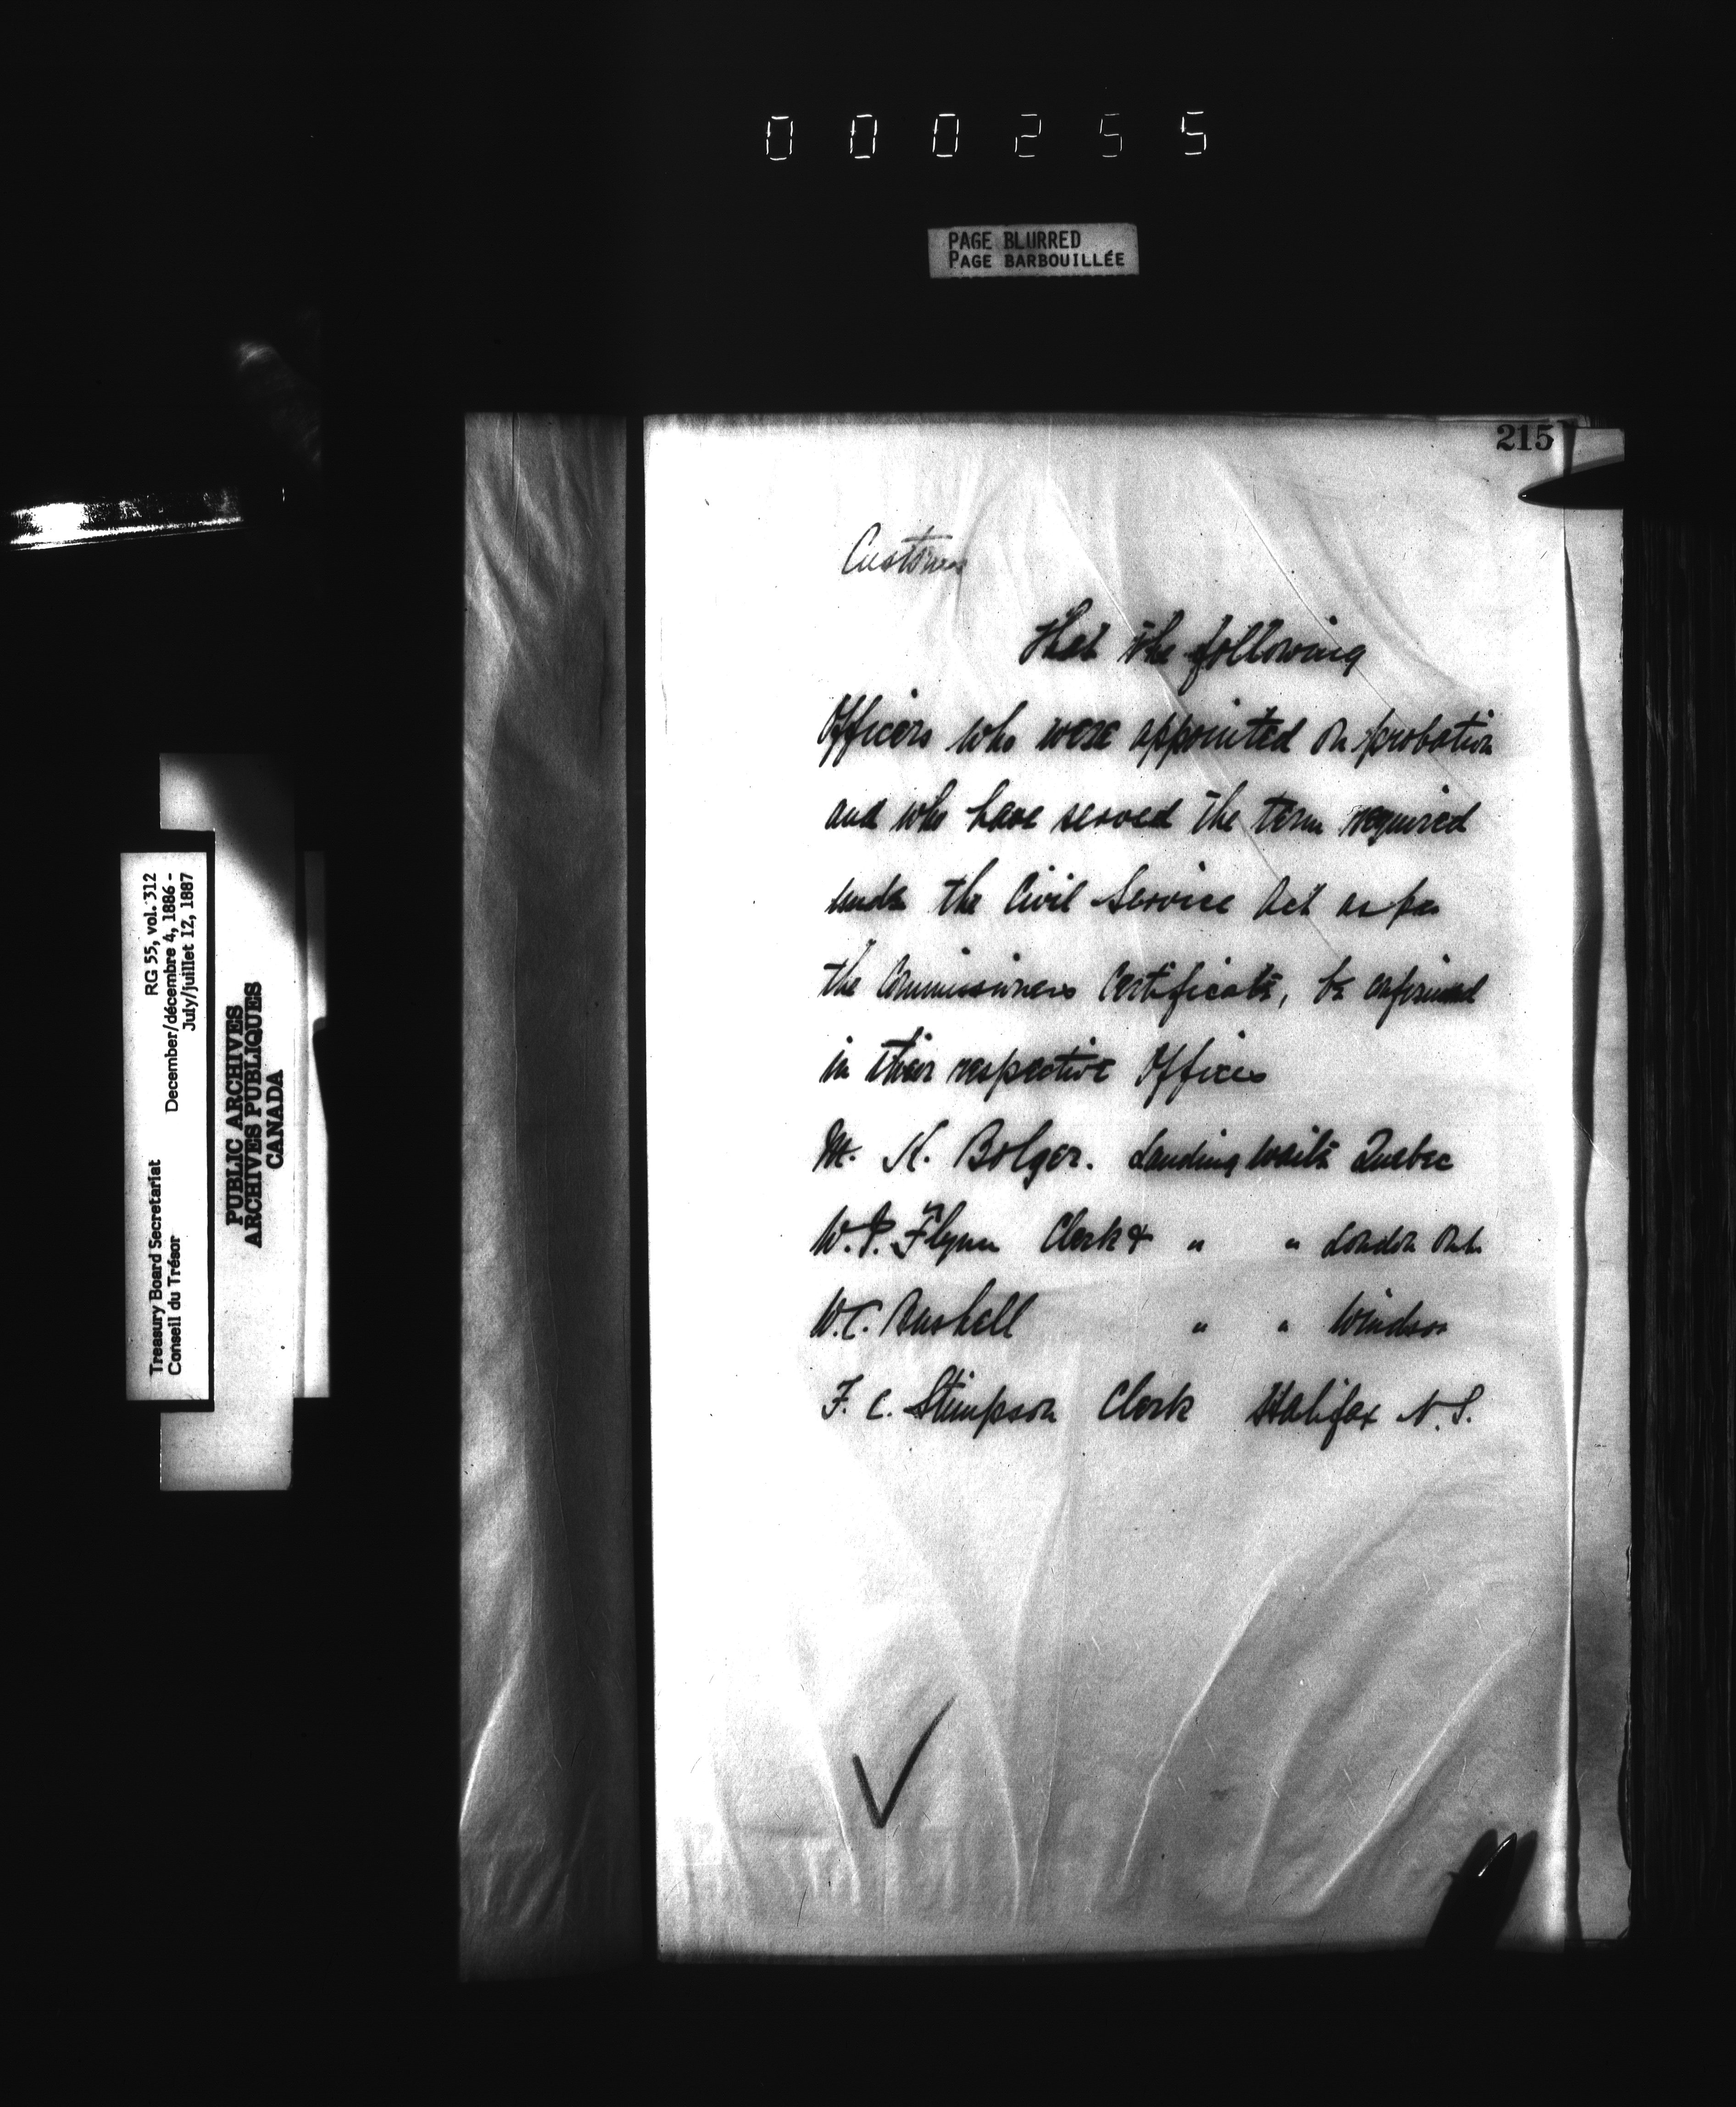 000255
PAGE BLURRED
PAGE BARBOUILLÉE
215
Customs
That the following
Officers who were appointed on probation
and who have served the term required
under the Civil Service Act as per
the Commissioners Certificate, be confirmed
in their respective Offices
M. K. Bolger. Landing waiter Quebec
W. P. Flynn Clerk & " " London Ont.
W. C. Bushell " " Windsor
F. C. Stimpson Clerk Halifax N. S.
Treasury Board Secretariat RG 55, vol. 312
Conseil du Trésor December/décembre 4, 1886 -
July/juillet 12, 1887
PUBLIC ARCHIVES
ARCHIVES PUBLIQUES
CANADA